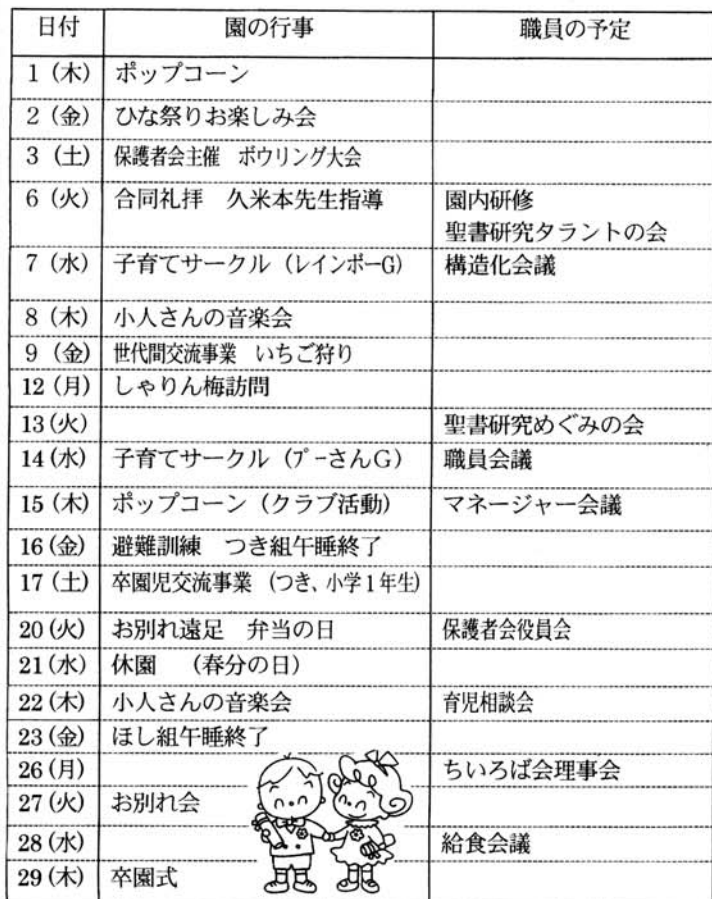 日付 園の行事 職員の予定
1 (木) ポップコーン
2 (金) ひな祭りお楽しみ会
3 (土) 保護者会主催 ボウリング大会
6 (火) 合同礼拝 久米本先生指導 園内研修
聖書研究タラントの会
7 (水) 子育てサークル (レインボーG) 構造化会議
8 (木) 小人さんの音楽会
9 (金) 世代間交流事業 いちご狩り
12 (月) しゃりん梅訪問
13 (火) 聖書研究めぐみの会
14 (水) 子育てサークル (プーさんG) 職員会議
15 (木) ポップコーン (クラブ活動) マネージャー会議
16 (金) 避難訓練 つき組午睡終了
17 (土) 卒園児交流事業 (つき、小学1年生)
20 (火) お別れ遠足 弁当の日 保護者会役員会
21 (水) 休園 (春分の日)
22 (木) 小人さんの音楽会 育児相談会
23 (金) ほし組午睡終了
26 (月) ちいろば会理事会
27 (火) お別れ会
28 (水) 給食会議
29 (木) 卒園式